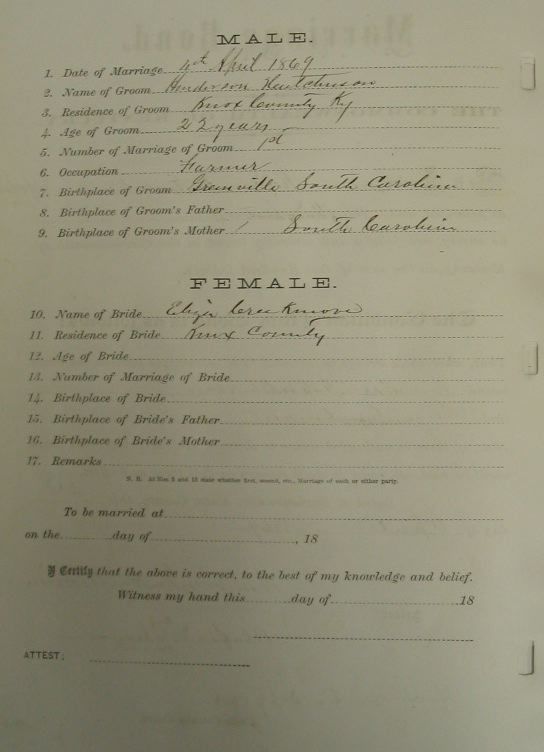 MALE.
1. Date of Marriage 4th April 1869
2. Name of Groom Anderson Hutchinson
3. Residence of Groom Knox County Ky
4. Age of Groom 22 years
5. Number of Marriage of Groom 1st
6. Occupation Farmer
7. Birthplace of Groom Greenville South Carolina
8. Birthplace of Groom's Father
9. Birthplace of Groom's Mother South Carolina
FEMALE.
10. Name of Bride Creekmore
11. Residence of Bride Knox County
12. Age of Bride
13. Number of Marriage of Bride
14. Birthplace of Bride
15. Birthplace of Bride's Father
16. Birthplace of Bride's Mother
17. Remarks
N. B. At Nos 5 and 13 state whether first, second, etc., Marriage of each or either party.
To be married at
on the day of , 18
I Certify that the above is correct, to the best of my knowledge and belief.
Witness my hand this day of 18
ATTEST: